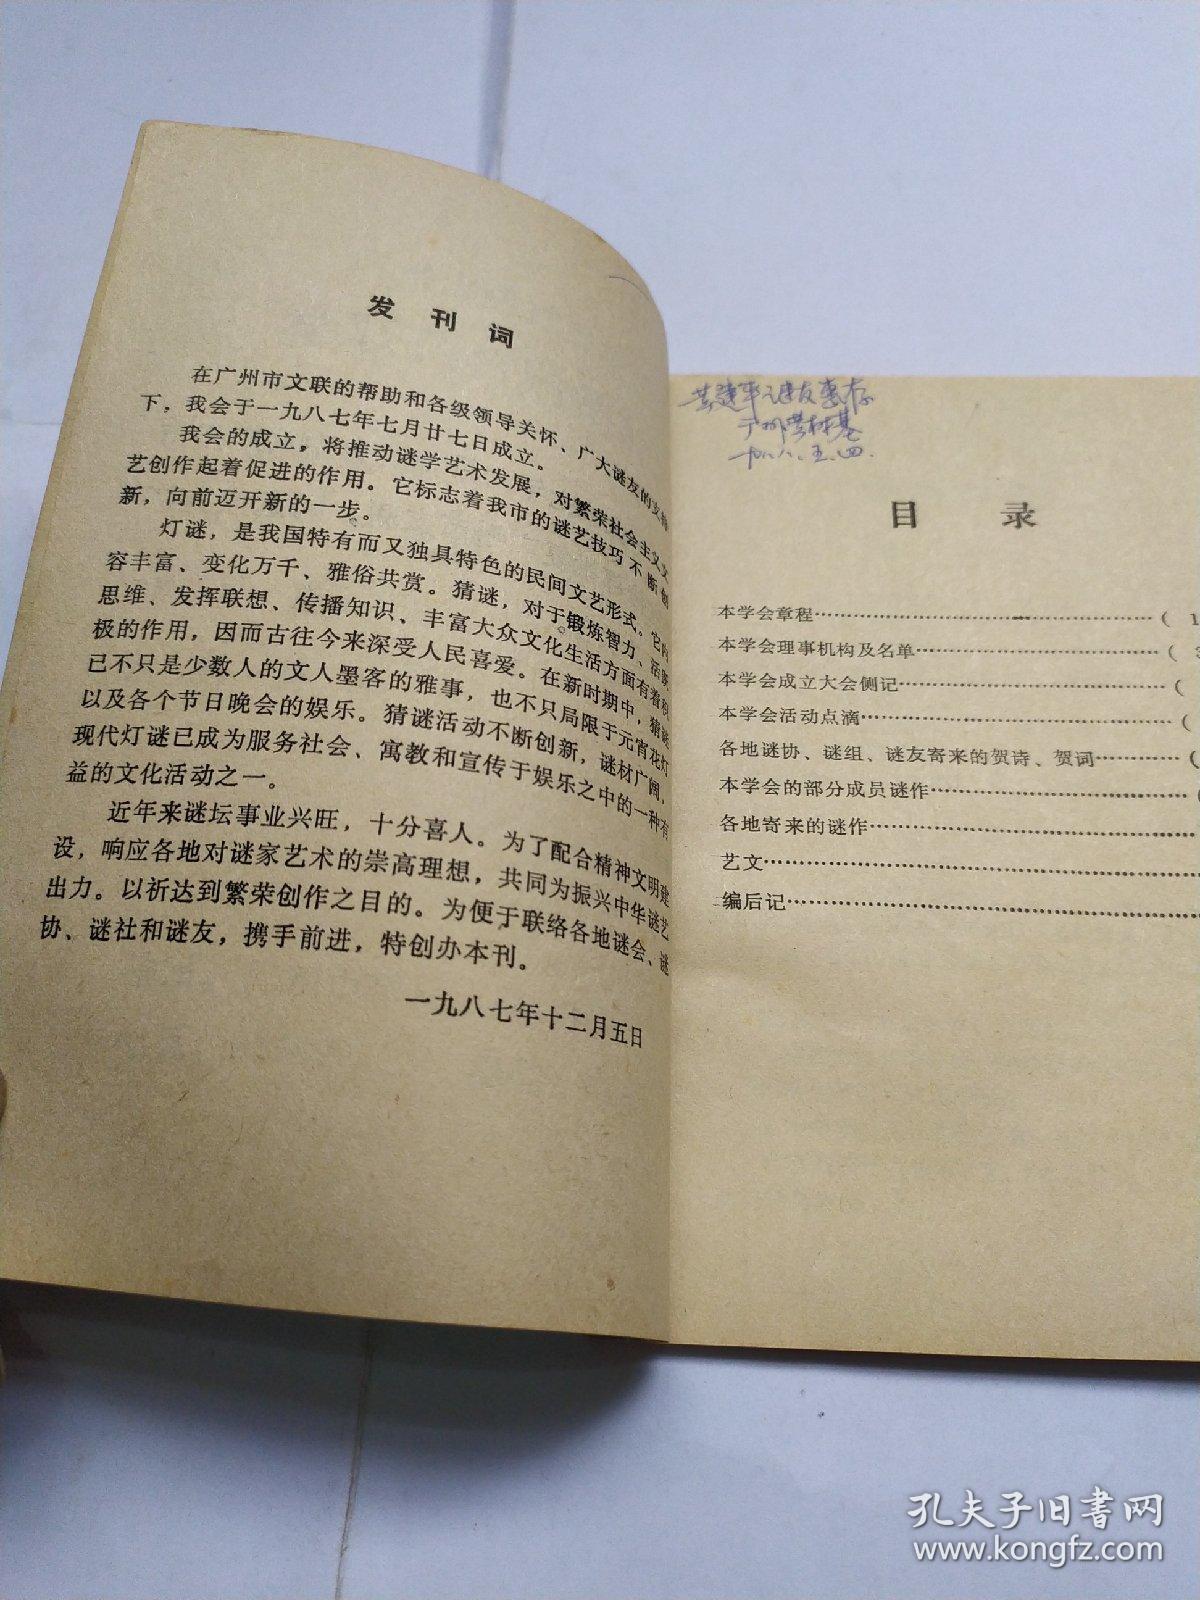 发刊词
在广州市文联的帮助和各级领导关怀、广大谜友的支持
下，我会于一九八七年七月廿七日成立。
我会的成立，将推动谜学艺术发展，对繁荣社会主义文
艺创作起着促进的作用。它标志着我市的谜艺技巧不断创
新，向前迈开新的一步。
灯谜，是我国特有而又独具特色的民间文艺形式。它内
容丰富、变化万千、雅俗共赏。猜谜，对于锻炼智力、活跃
思维、发挥联想、传播知识、丰富大众文化生活方面有着积
极的作用，因而古往今来深受人民喜爱。在新时期中，猜谜
已不只是少数人的文人墨客的雅事，也不只局限于元宵花灯
以及各个节日晚会的娱乐。猜谜活动不断创新，谜材广阔，
现代灯谜已成为服务社会、寓教和宣传于娱乐之中的一种有
益的文化活动之一。
近年来谜坛事业兴旺，十分喜人。为了配合精神文明建
设，响应各地对谜家艺术的崇高理想，共同为振兴中华谜艺
出力。以祈达到繁荣创作之目的。为便于联络各地谜会、谜
协、谜社和谜友，携手前进，特创办本刊。
一九八七年十二月五日
谜友惠存
广州
一九八八.五.四.
目录
本学会章程…………………………………………（ 1
本学会理事机构及名单………………………………（ 3
本学会成立大会侧记…………………………………（
本学会活动点滴………………………………………（
各地谜协、谜组、谜友寄来的贺诗、贺词…………（
本学会的部分成员谜作………………………………（
各地寄来的谜作………………………………………
艺文……………………………………………………
编后记…………………………………………………
孔夫子旧书网
www.kongfz.com